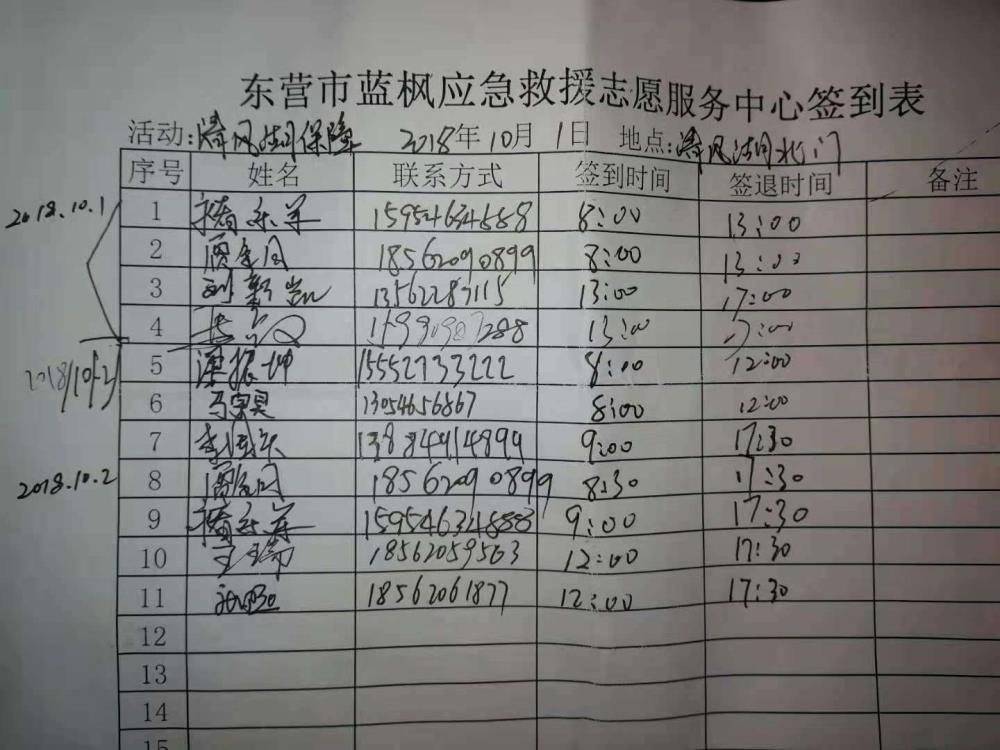 东营市蓝枫应急救援志愿服务中心签到表
活动:清风湖保障 2018年10月1日 地点:清风湖北门
序号 姓名 联系方式 签到时间 签退时间 备注
2018.10.1
1 褚 15954634888 8:00 13:00
2 18562090899 8:00 13:00
3 刘新凯 13562287115 13:00 17:00
4 13:00 17:00
5 梁振坤 15552733222 8:00 12:00
6 13054656867 8:00 12:00
7 13884914894 9:00 17:30
2018.10.2
8 18562090899 8:30 17:30
9 褚 15954634888 9:00 17:30
10 18562059563 12:00 17:30
11 18562061877 12:00 17:30
12
13
14
15